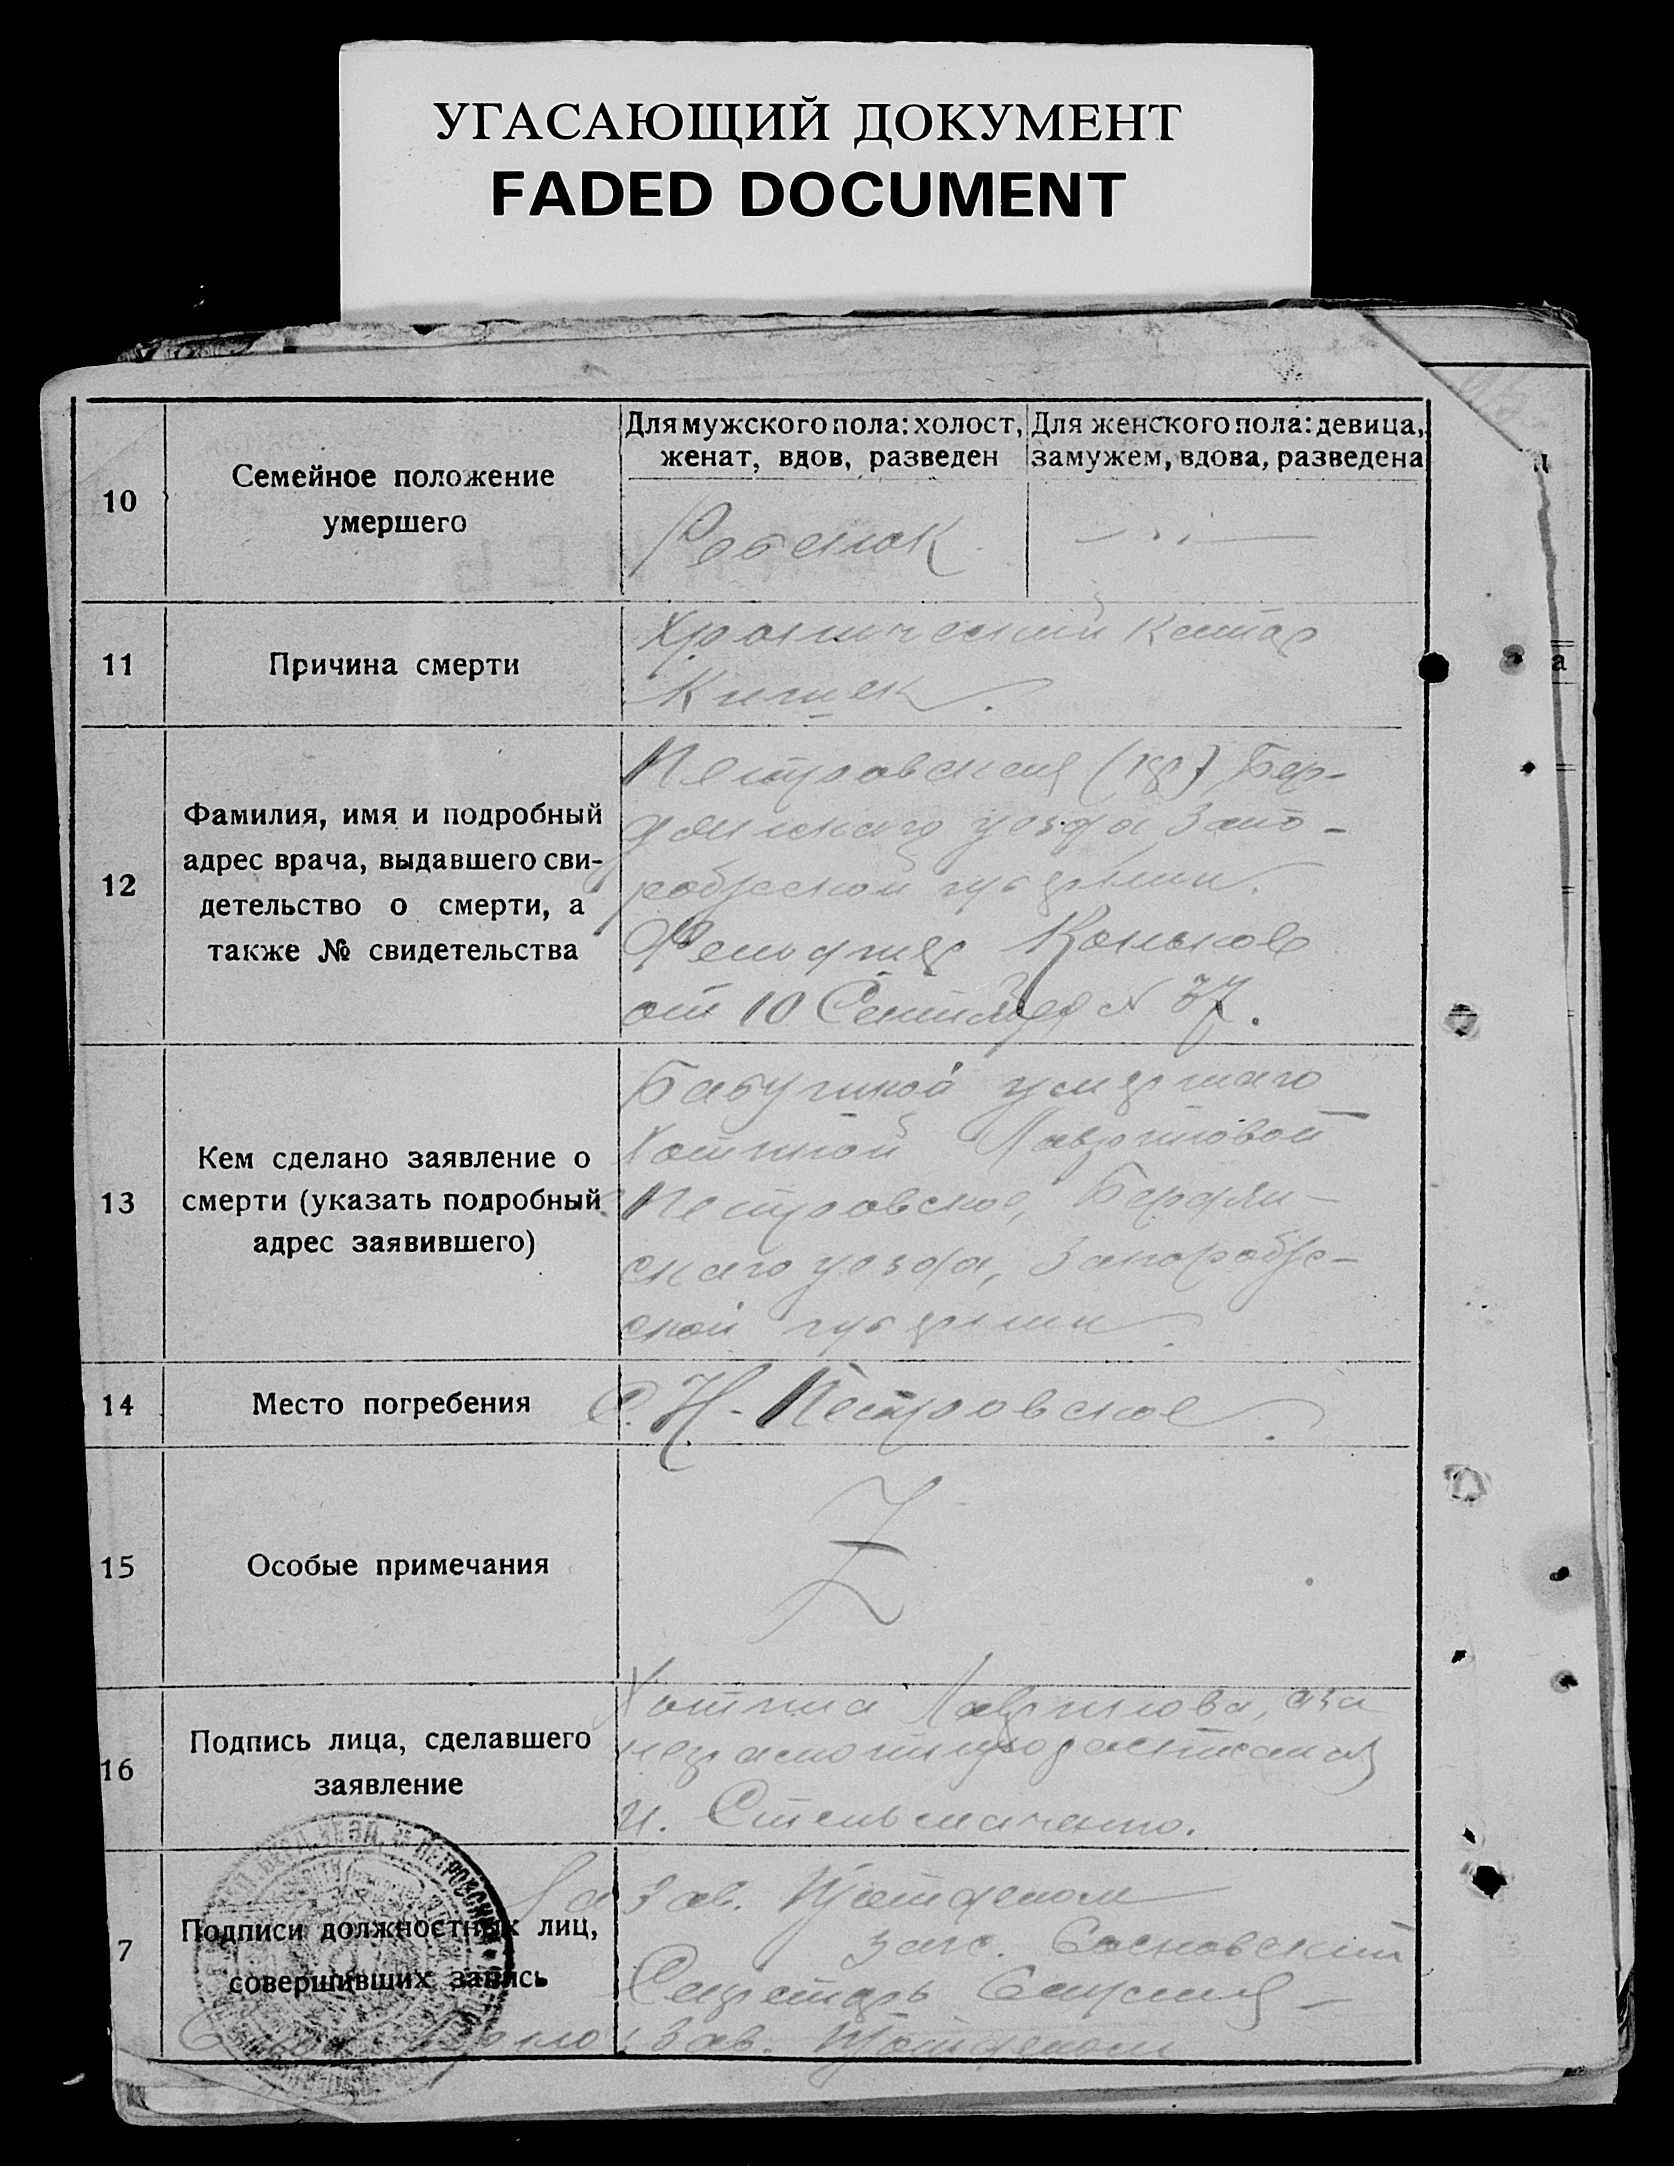 УГАСАЮЩИЙ ДОКУМЕНТ
FADED DOCUMENT
10
Семейное положение
умершего
Для мужского пола: холост,
женат, вдов, разведен
Для женского пола: девица,
замужем, вдова, разведена
Ребенок
11
Причина смерти
Хронический катар
Кишек.
12
Фамилия, имя и подробный
адрес врача, выдавшего сви-
детельство о смерти, а
также № свидетельства
Петровская Бер-
дянского уезда Запо-
рожской губернии.
Фельдшер Коньков
от 10 Сентября № 37.
13
Кем сделано заявление о
смерти (указать подробный
адрес заявившего)
Бабушкой умершаго
Петровское, Бердян-
скаго уезда, Запорож-
ской губернии
14
Место погребения
С. Н-Петровское.
15
Особые примечания
Z
16
Подпись лица, сделавшего
заявление
а за
И. Стельмаченко.
7
Подписи должностных лиц,
совершивших запись
За Зав. Подотделом
загс. Сосновский
Секретарь
Зав. Подотделом